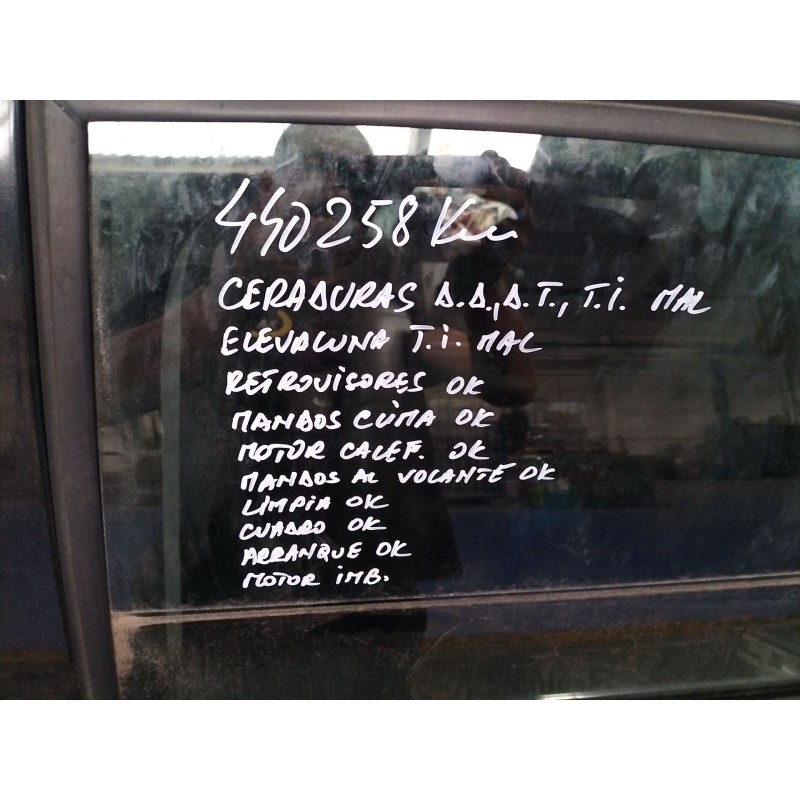 440258 Km
CERADURAS D.D., D.T., T.i. MAL
ELEVALUNA T.i. MAL
RETROViSORES OK
MANDOS CLIMA OK
MOTOR CALEF. OK
MANDOS AL VOLANTE OK
LIMPIA OK
CUADRO OK
ARRANQUE OK
MOTOR iMB.